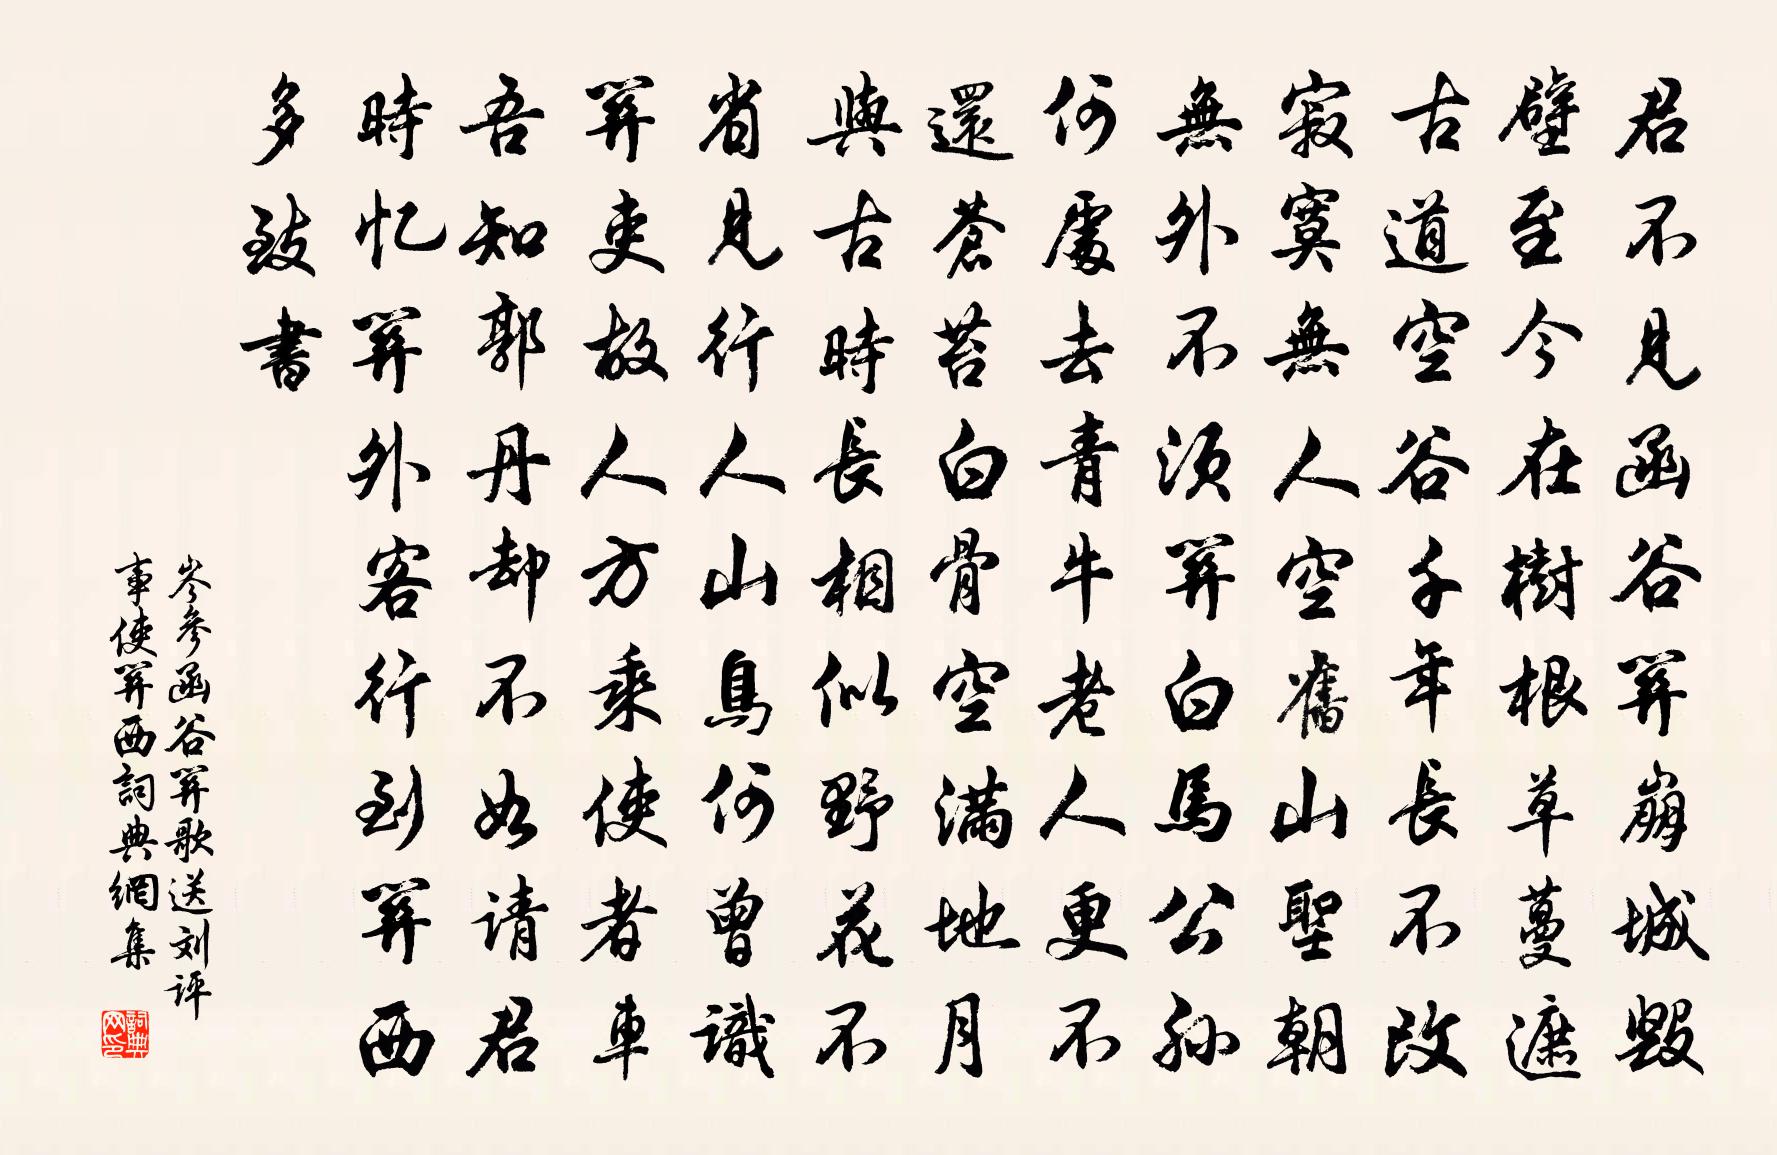 君不見函谷関崩城毀
壁至今在樹根草蔓遮
古道空谷千年長不改
寂寞無人空舊山聖朝
無外不須関白馬公孫
何處去青牛老人更不
還蒼苔白骨空滿地月
與古時長相似野花不
省見行人山鳥何曾識
関吏故人方乘使者車
吾知郭丹却不如请君
時忆関外客行到関西
多致書
岑參函谷関歌送刘评
事使関西詞典網集
詞典网印